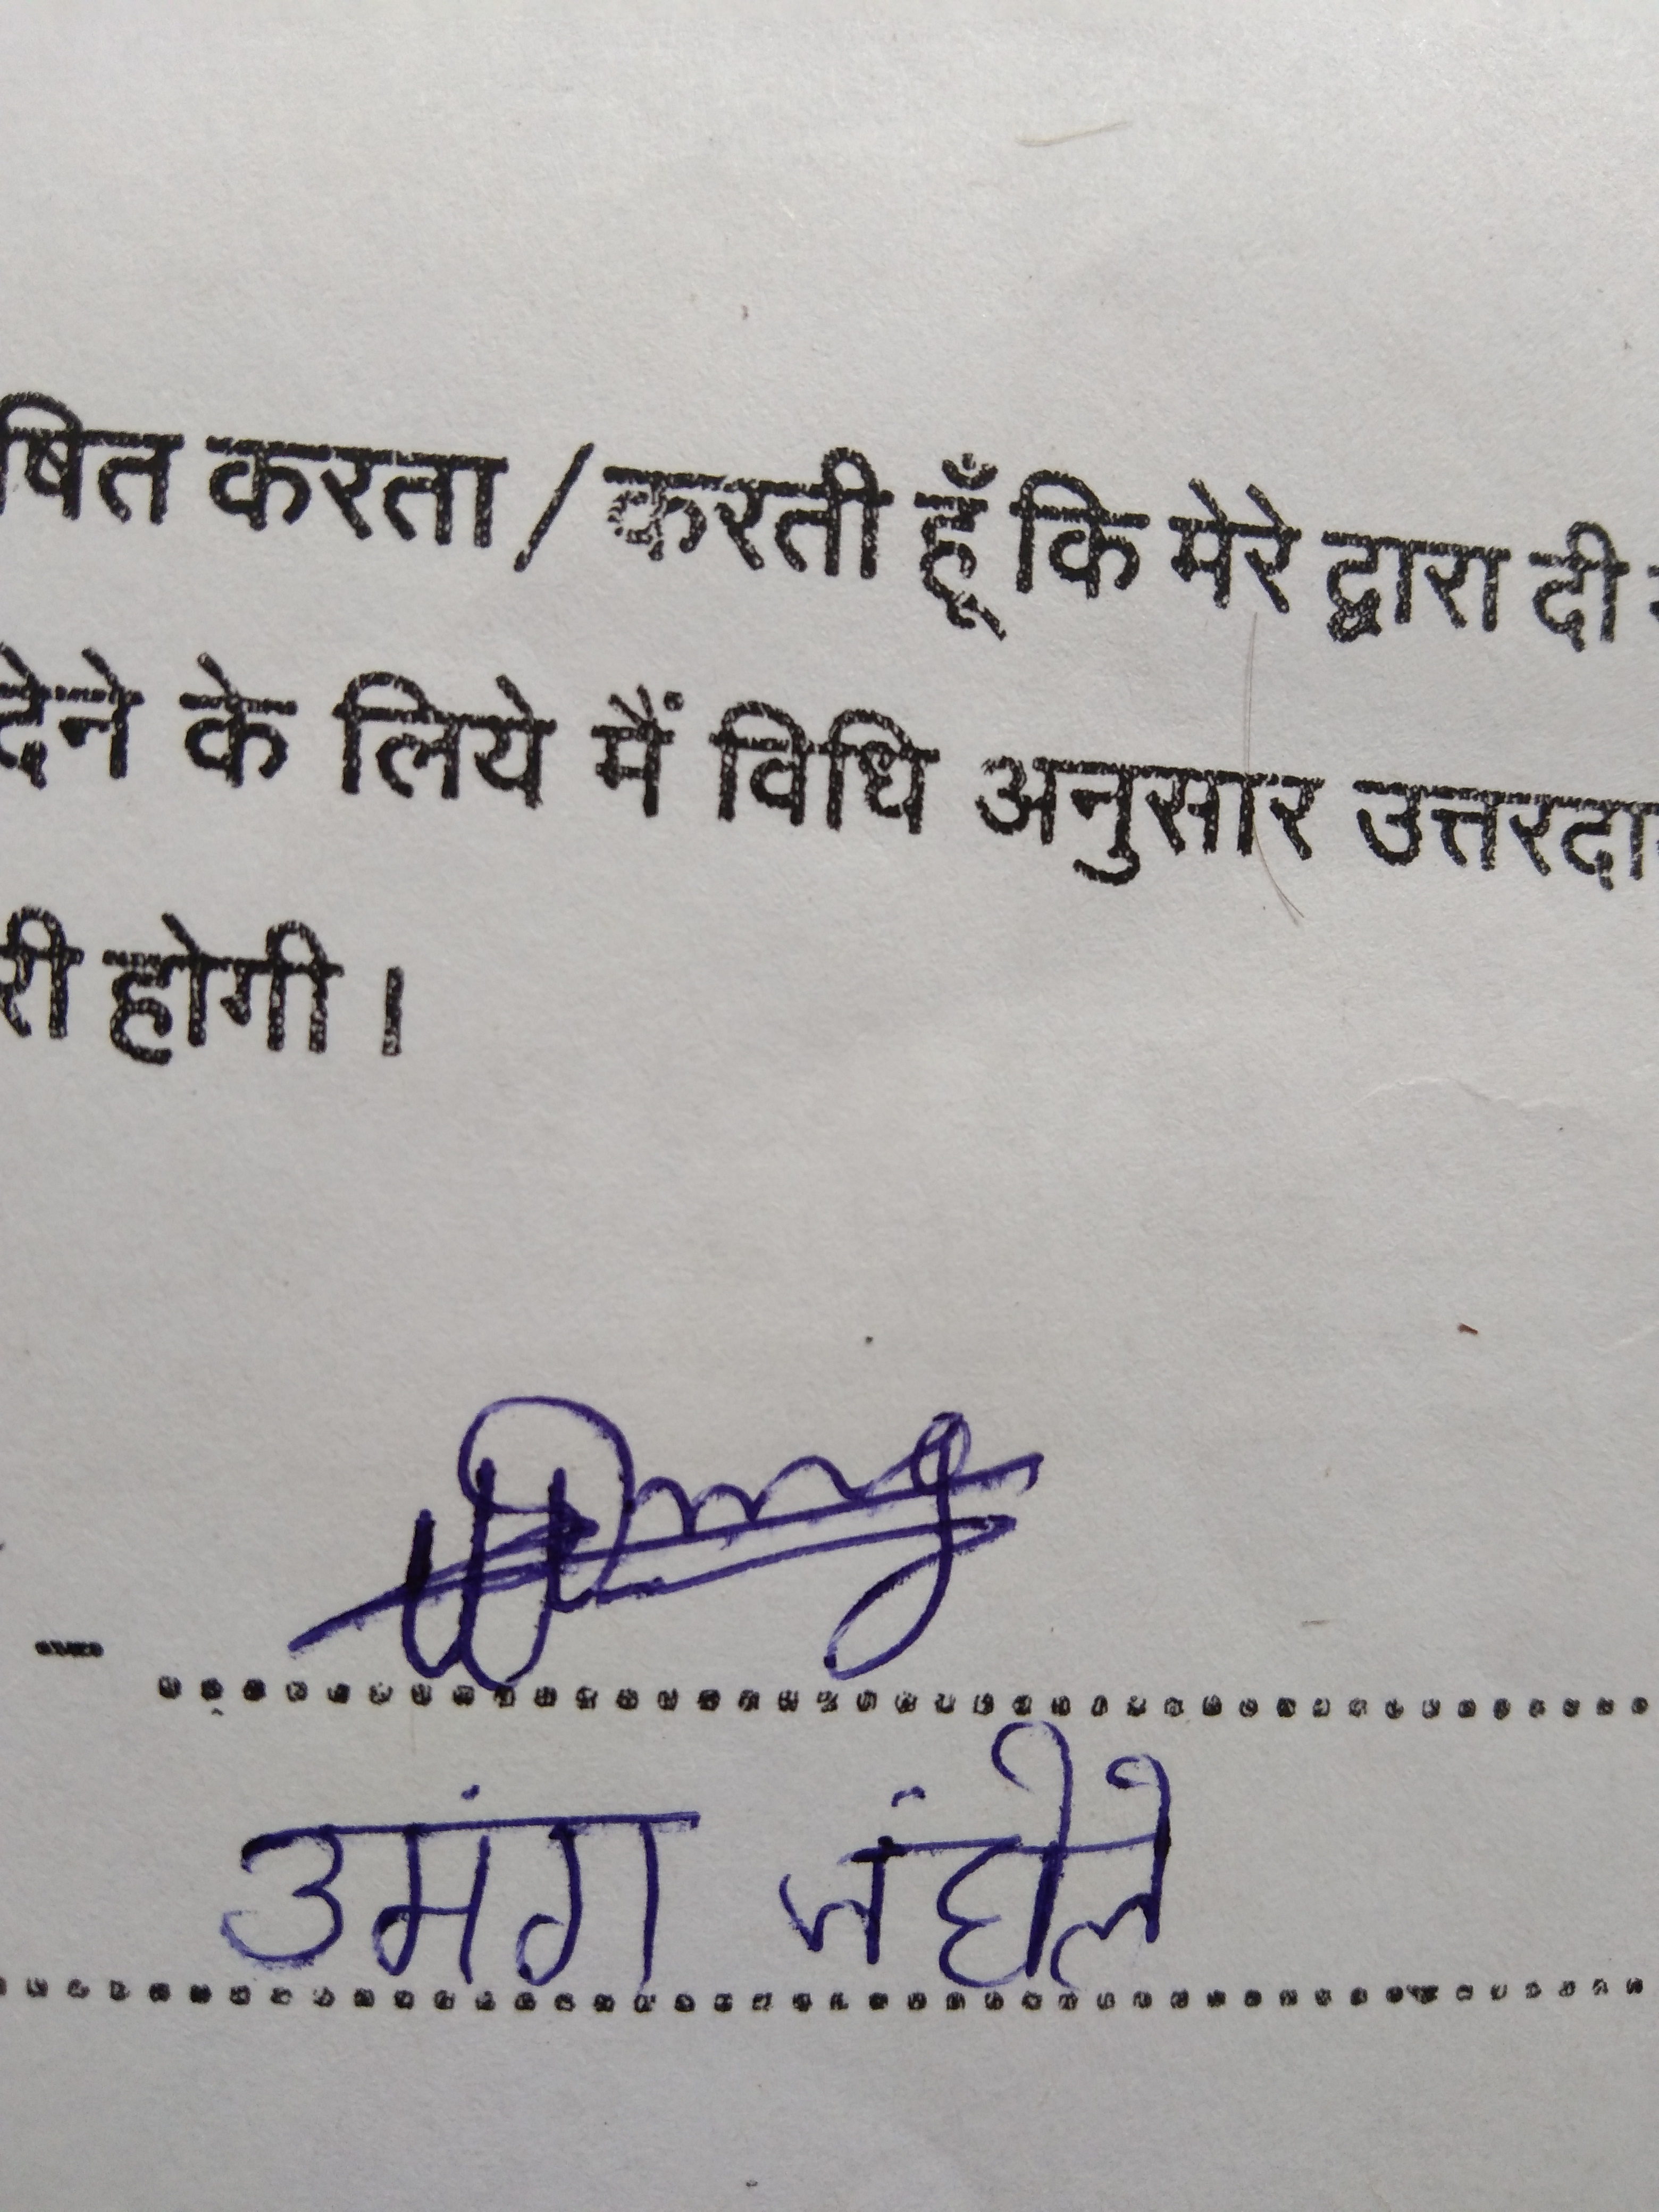 षित करता / करती हूँ कि मेरे द्वारा दी
देने के लिये मैं विधि अनुसार उत्तरदा
री होगी ।
–
उमंग